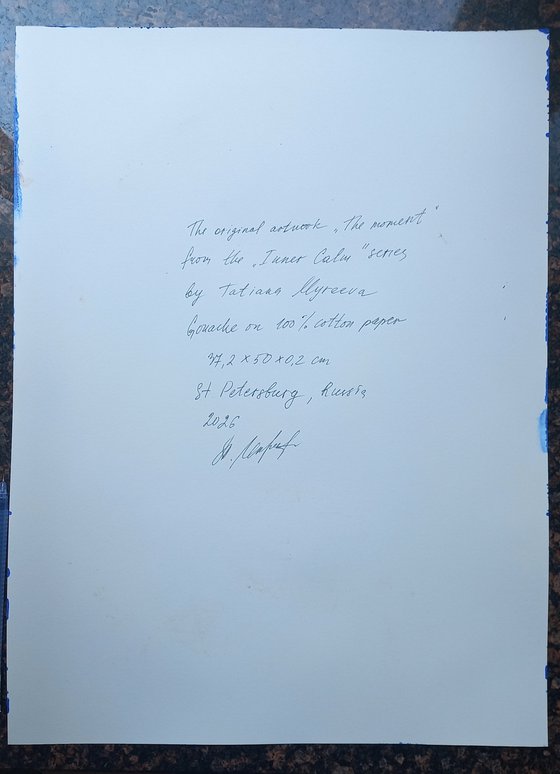 The original artwork „The moment"
from the „Inner Calm" series
by Tatiana Myreeva
Gouache on 100% cotton paper
37,2 x 50 x 0,2 cm
St Petersburg, Russia
2026